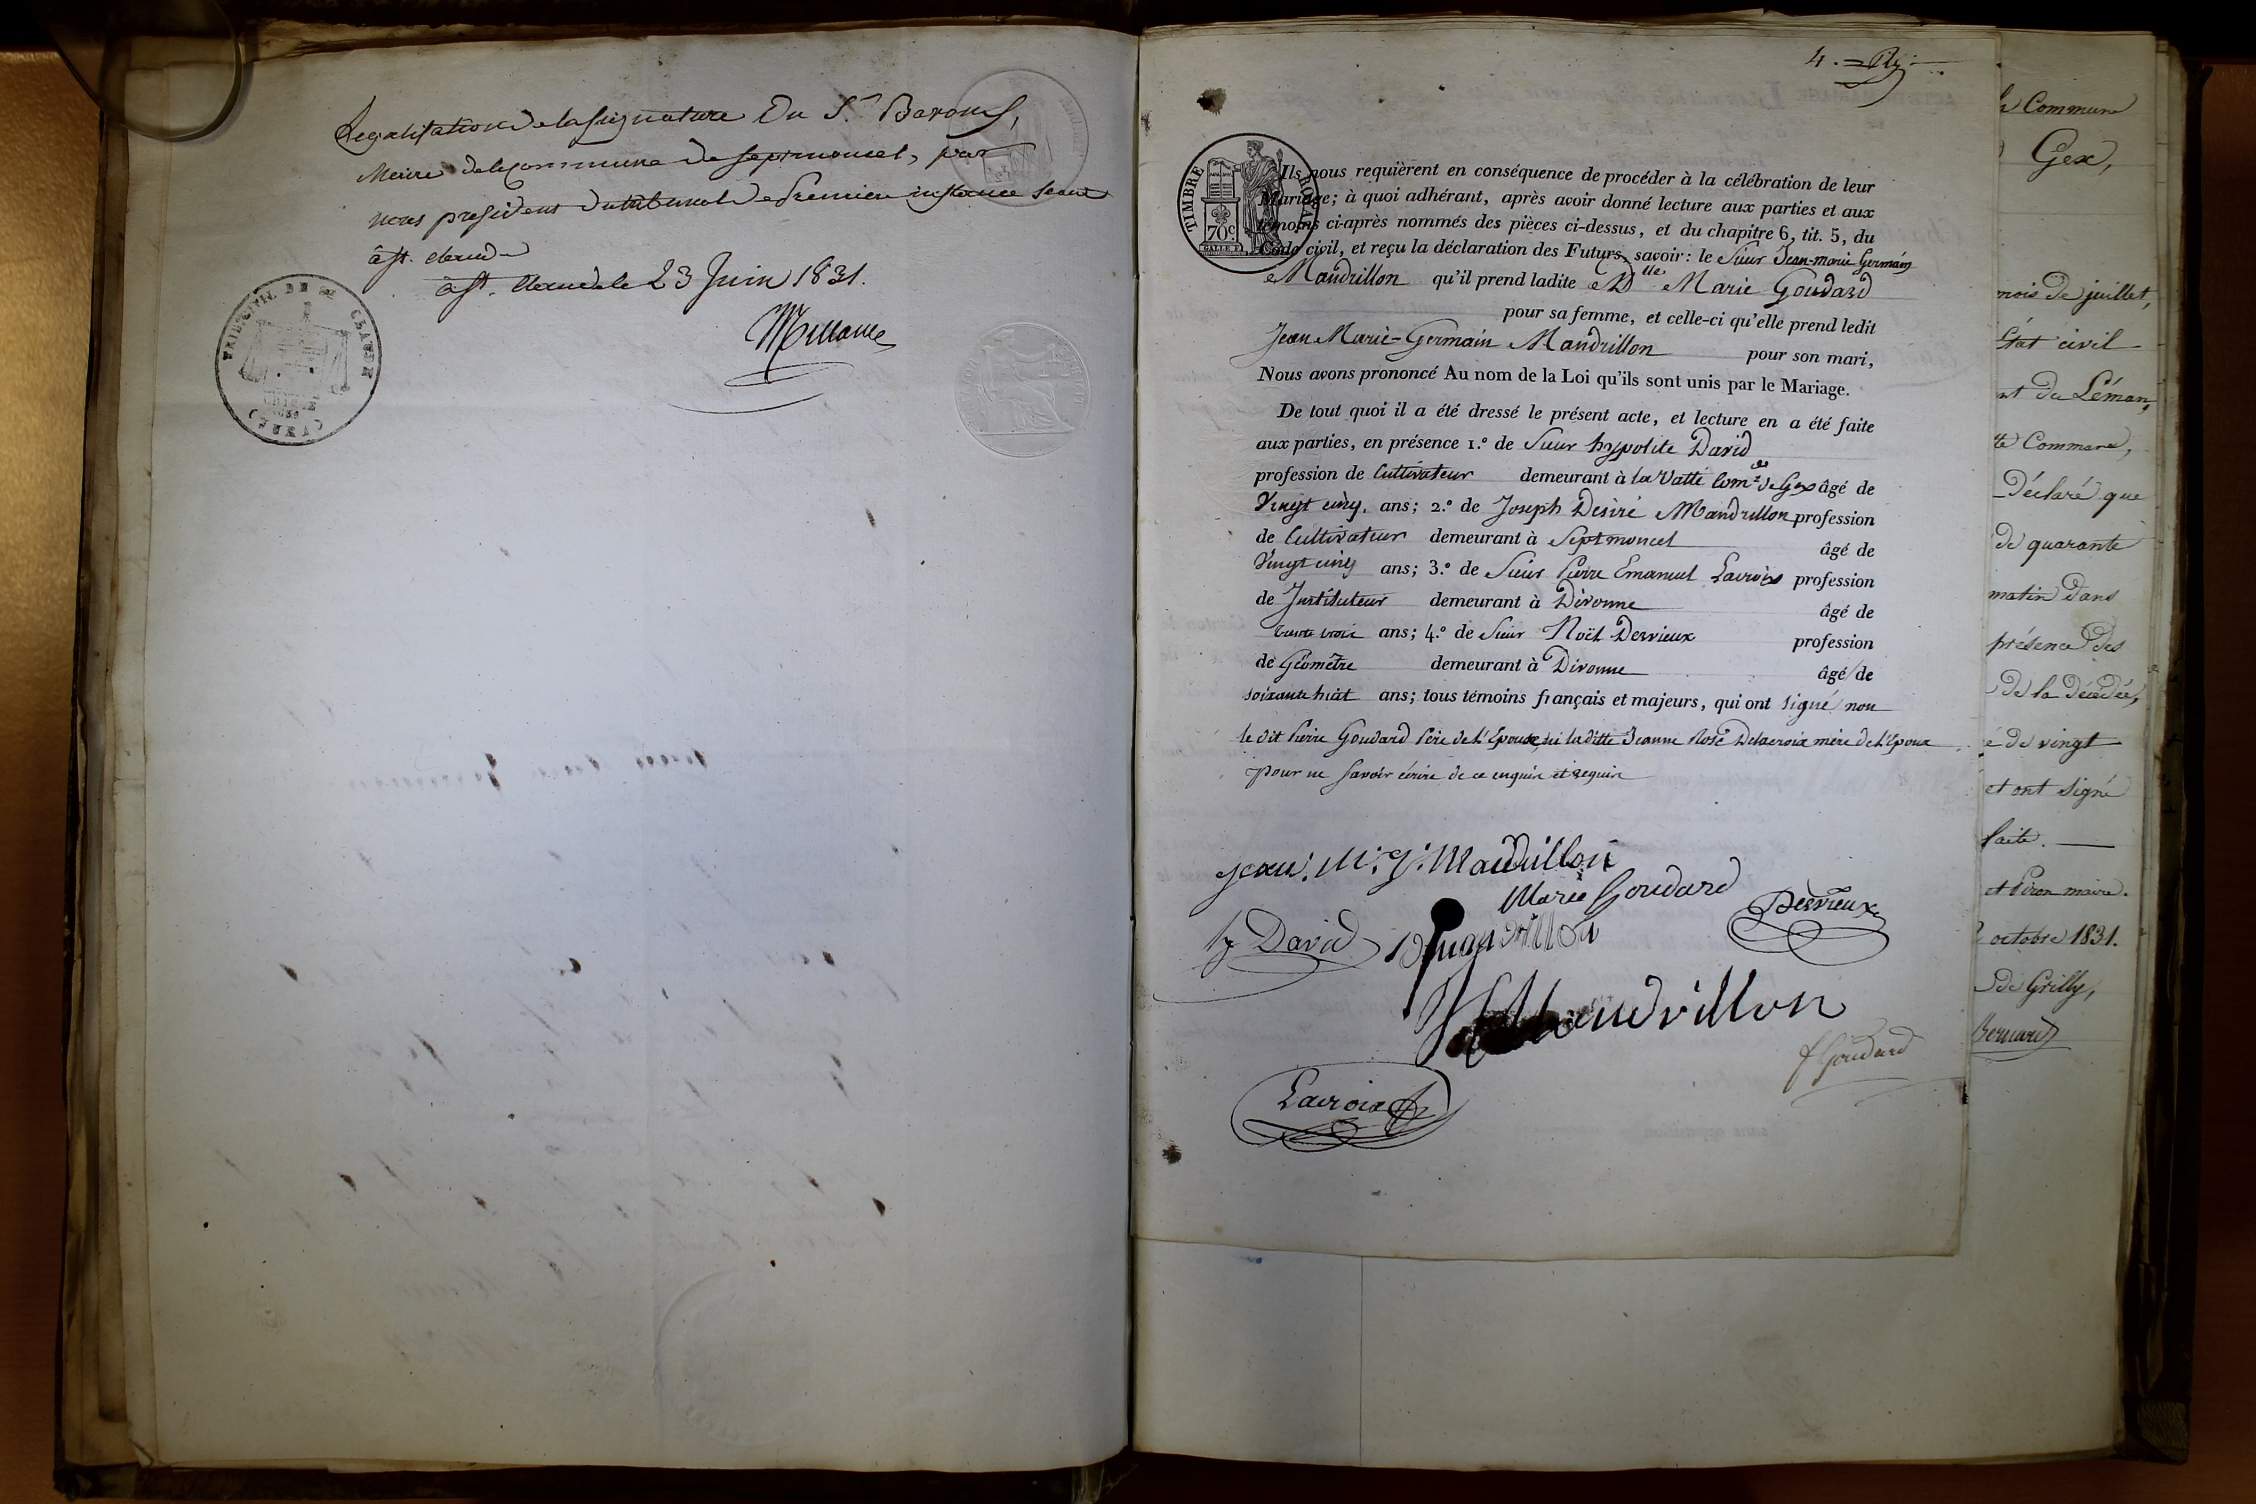 Legalisation de la signature Du S.r Baroud,
Maire de la Commune de Septmoncel, par
nous president du tribunal de Premiere instance seant
à st. claude
à st. claude le 23 Juin 1831.
TRIB. CIVIL DE ST CLAUDE
4.
TIMBRE ROYAL
70c
Ils nous requièrent en conséquence de procéder à la célébration de leur
Mariage; à quoi adhérant, après avoir donné lecture aux parties et aux
témoins ci-après nommés des pièces ci-dessus, et du chapitre 6, tit. 5, du
Code civil, et reçu la déclaration des Futurs, savoir: le Sieur Jean-marie Germain
Mandrillon qu'il prend ladite D.lle Marie Goudard
pour sa femme, et celle-ci qu'elle prend ledit
Jean Marie-Germain Mandrillon pour son mari,
Nous avons prononcé Au nom de la Loi qu'ils sont unis par le Mariage.
De tout quoi il a été dressé le présent acte, et lecture en a été faite
aux parties, en présence 1.º de Sieur hypolite David
profession de Cultivateur demeurant à la Vatté Com.e de Gex âgé de
Vingt cinq. ans; 2.º de Joseph Désiré Mandrillon profession
de Cultivateur demeurant à Septmoncel âgé de
Vingt cinq ans; 3.º de Sieur Pierre Emanuel Lacroix profession
de Instituteur demeurant à Divonne âgé de
trente trois ans; 4.º de Sieur Noël Desvieux profession
de Géomètre demeurant à Divonne âgé de
soixante huit ans; tous témoins français et majeurs, qui ont signé non
le dit Pierre Goudard Père de l'Epouse, ni la ditte Jeanne Rose Delacroix mère de l'Epoux
pour ne savoir écrire de ce enquis et requis
jean. M. g. Mandrillon
Marie Goudard
Desvieux
hy David
Mandrillon
Mandrillon
f Goudard
Lacroix
Commune
Gex,
mois de juillet,
État civil
du Léman,
Commune,
Déclaré que
de quarante
matin dans
présence des
de la décédée,
de vingt
et ont signé
faite.
et Piron maire.
octobre 1831.
de Grilly,
Bernard